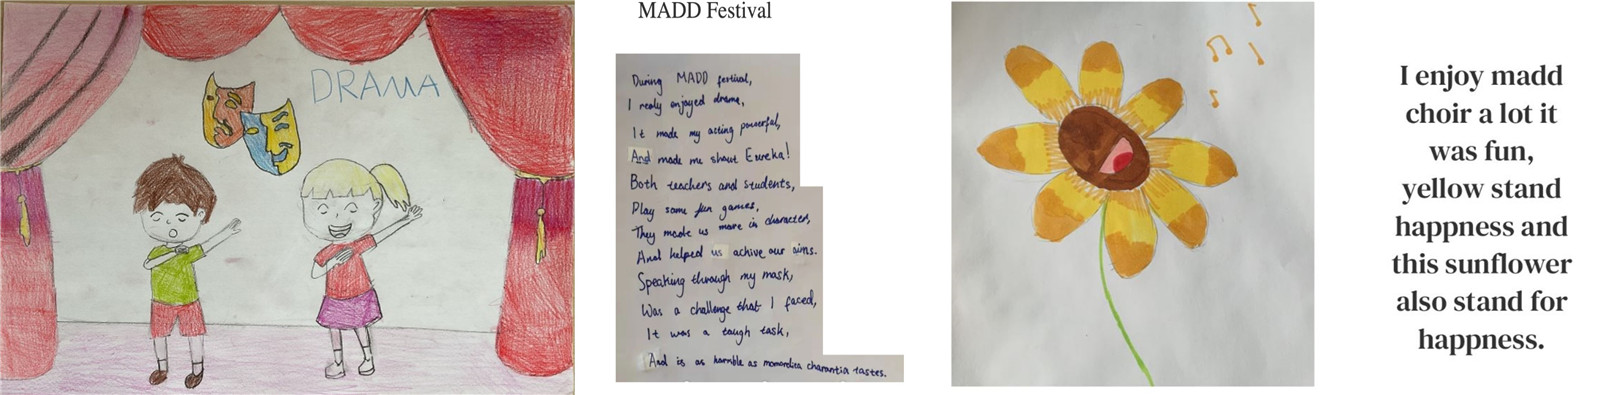 DRAMA
MADD Festival
During MADD festival,
I realy enjoyed drama,
It made my acting powerful,
And made me shout Eureka!
Both teachers and students,
Play some fun games,
They made us more in character,
And helped us achive our aims.
Speaking through my mask,
Was a challenge that I faced,
It was a tough task,
And is as horrible as momordica charantia tastes.
I enjoy madd
choir a lot it
was fun,
yellow stand
happness and
this sunflower
also stand for
happness.